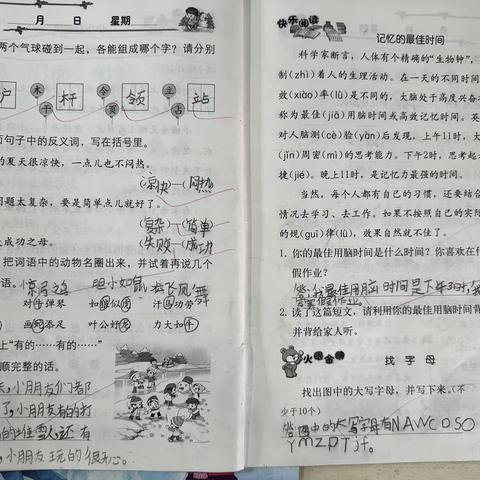 月 日 星期
两个气球碰到一起，各能组成哪个字？请分别
木 干 杆 令 页 领 立 占 站
句子中的反义词，写在括号里。
的夏天很凉快，一点儿也不闷热。
（凉快）—（闷热）
题太复杂，要是简单点儿就好了。
（复杂）—（简单）
成功之母。
（失败）—（成功）
把词语中的动物名圈出来，并试着再说几个
语。
胆小如鼠 龙飞凤舞
对牛弹琴 如狼似虎 汗马功劳
画蛇添足 叶公好龙 力大如牛
上“有的……有的……”
顺完整的话。
小朋友们都
了，小朋友有的打
的堆雪人，还有
小朋友玩的很开心。
快乐阅读
记忆的最佳时间
科学家断言，人体有个精确的“生物钟”，
制(zhì)着人的生理活动。在一天的不同时间
效(xiào)率(lǜ)是不同的，大脑处于高度兴奋
称为最佳(jiā)用脑时间或高效记忆时间。英
对人脑测(cè)验(yàn)后发现，上午8时，大
(jǐn)周密(mì)的思考能力。下午2时，思考起
捷(jié)。晚上11时，是记忆力最强的时间。
当然，每个人都有自己的习惯，还要结合
情况去学习、去工作。如果不按照自己的实际
的规(guī)律(lǜ)，效果自然就不佳了。
1. 你的最佳用脑时间是什么时间？你喜欢在什
假作业？
答：我最佳用脑时间是下午3时
寒假作业。
2. 读了这篇短文，请利用你的最佳用脑时间背
并背给家人听。
火眼金睛
找字母
找出图中的大写字母，并写下来。(不
少于10个)
答：图中的大写字母有NAWCDSO
YMZPTJf。